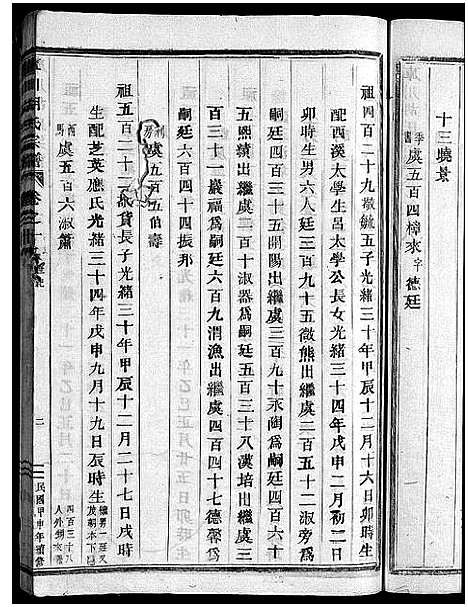 十三曉景
季書虞五百四樟來字德廷
祖四百二十九璈敏五子光緒三十年甲辰十二月十六日卯時生
配西溪太學生呂太學公長女光緒三十四年戊申二月初二日
卯時生男六人廷三百九十五徵熊出繼虞二百五十二淑旁爲
嗣廷四百三十五開陽出繼虞三百九十永陶爲嗣廷四百六十
五熙績出繼虞二百十淑器爲嗣廷五百三十八漢培出繼虞三
百三十一嚴福爲嗣廷六百九渭漁出繼虞四百四十七德馨爲
嗣廷六百四十四振邦
虞五百五伯壽
祖五百二十二 貨長子光緒三十年甲辰十二月二十七日戌時
生配芝英應氏光緒三十四年戊申九月十九日辰時生
繼男一廷又
茂朝本下
虞五百六淑簫
四百三十八
民國甲申年續修
胡氏宗譜
卷之十
二